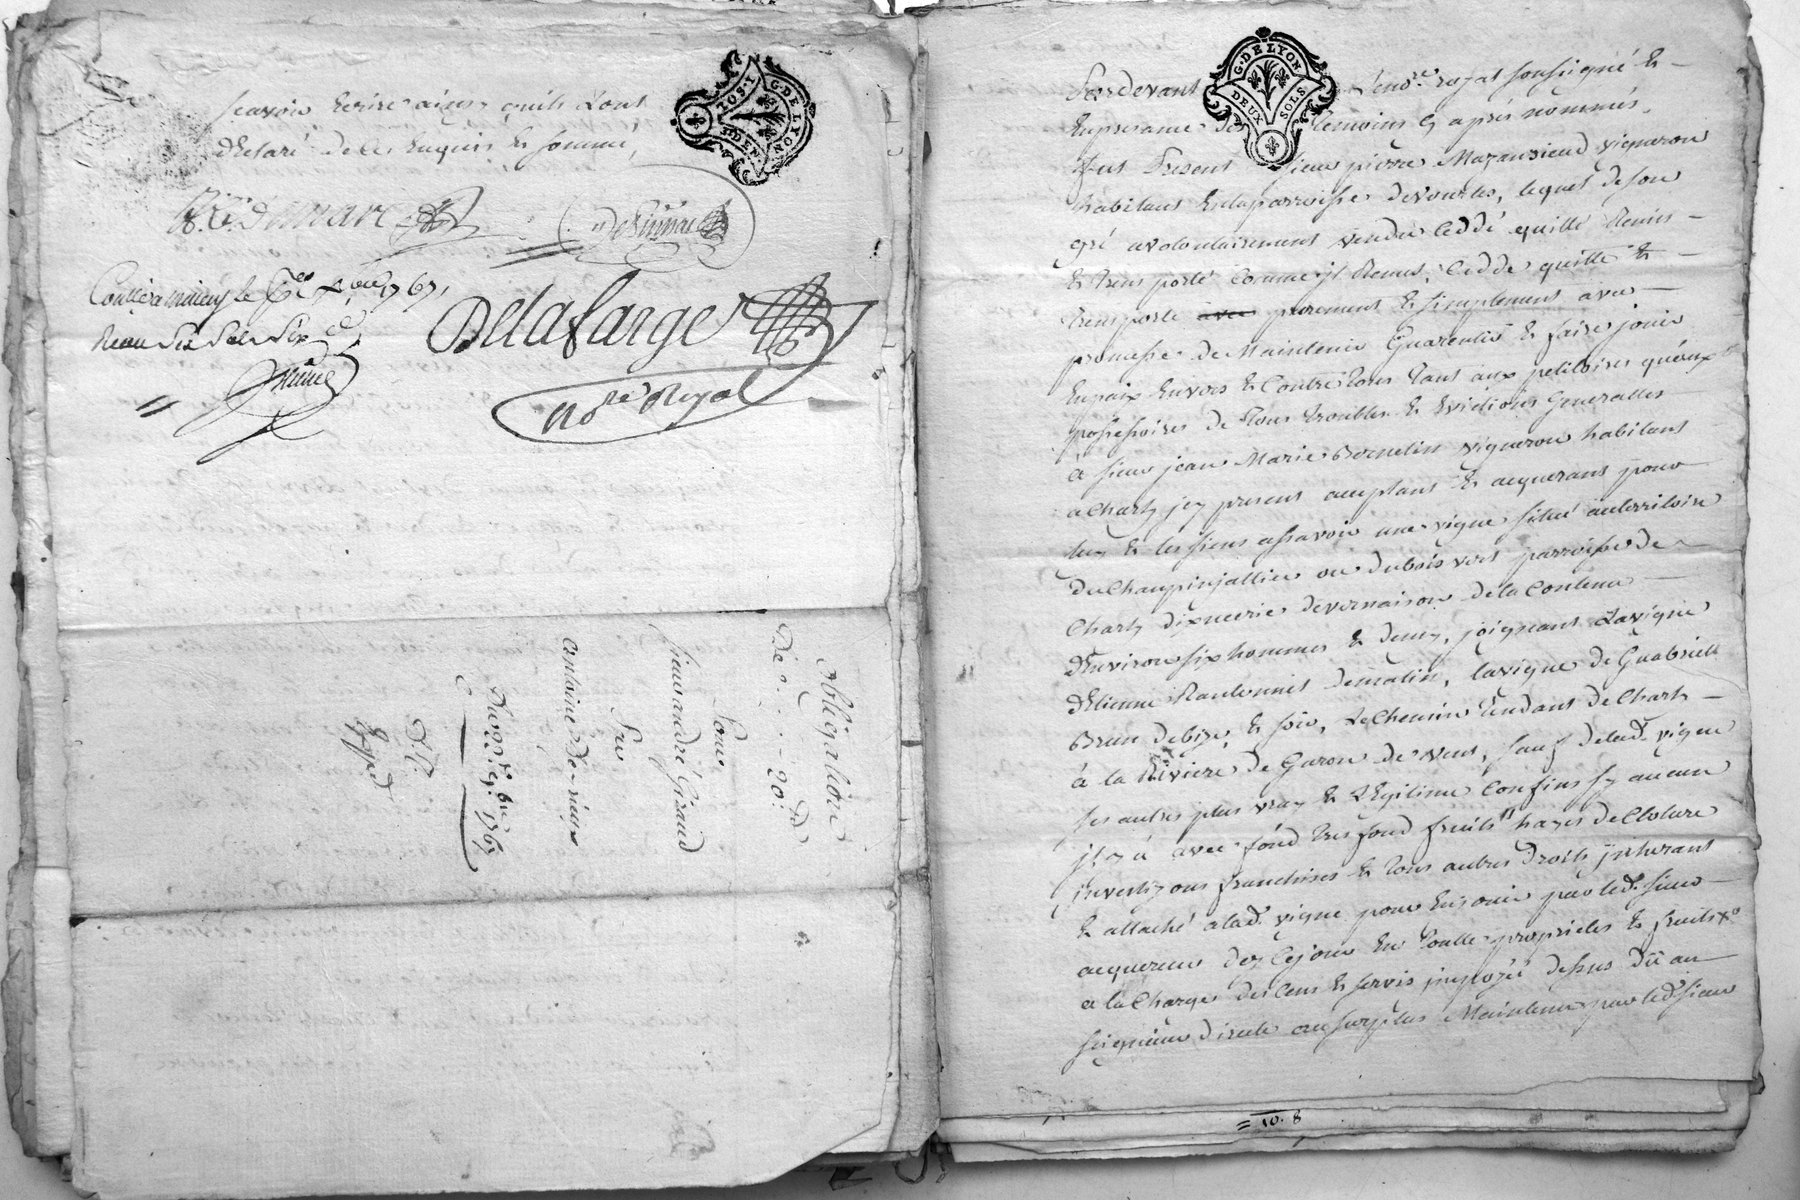 scavoir Ecrire ainsy quils Lont
declaré de ce Enquis & sommé,
G. DE LYON
Demare
Conllé a millery le 7bre 1767,
Receu Six Sols Six
Delafarge
No.re Royal
obligation
De 20
Pour
sieur andré Giraud
Sur
antoine De
Du 22 9bre 1767
Exp.d
G. DE LYON
DEUX SOLS
Pardevant Le no.re royal soussigné &
En presence des Temoins Cy après nommés
fut Present sieur pierre Mazansieud vigneron
habitant En la parroisse de vourles, lequel de son
gré a volontairement vendu Ceddé quitté Remis
& transporté Comme jl Remet, Cedde quitte &
transporte avec purement & simplement avec
promesse de Maintenir Guarentir & faire jouir
En paix Envers & Contre tous tant aux petitoires qu'aux
possessoires de Tous troubles & Evictions Generalles
à sieur jean Marie Bornelin vigneron habitant
a Charly jcy present acceptant & acquerant pour
luy & les siens assavoir une vigne situé au territoire
du Champinjallier ou du bois vert parroisse de
Charly dixmerie de vernaison de la Contenu
d'Environ six hommes & demy, joignant La vigne
d'Etienne de matin, la vigne de Guabriell
Brun de bize, & soir, Le Chemin Tendant de Charly
à la Riviere de Garon de vent, sauf de lad. vigne
ses autres plus vray & Legitime Confins sy aucun
jl y à avec fond Tres fond fruits hayes de Cloture
franchises & Tous autres droits jnherant
& attaché a lad. vigne pour En jouir par led. sieur
acquereur dez Ce jour En Toutte proprietés & fruits
a la Charge des Cens & servis jmposée dessus dü au
seigneur directe au surplus Maintenu par led. sieur
= 10. 8